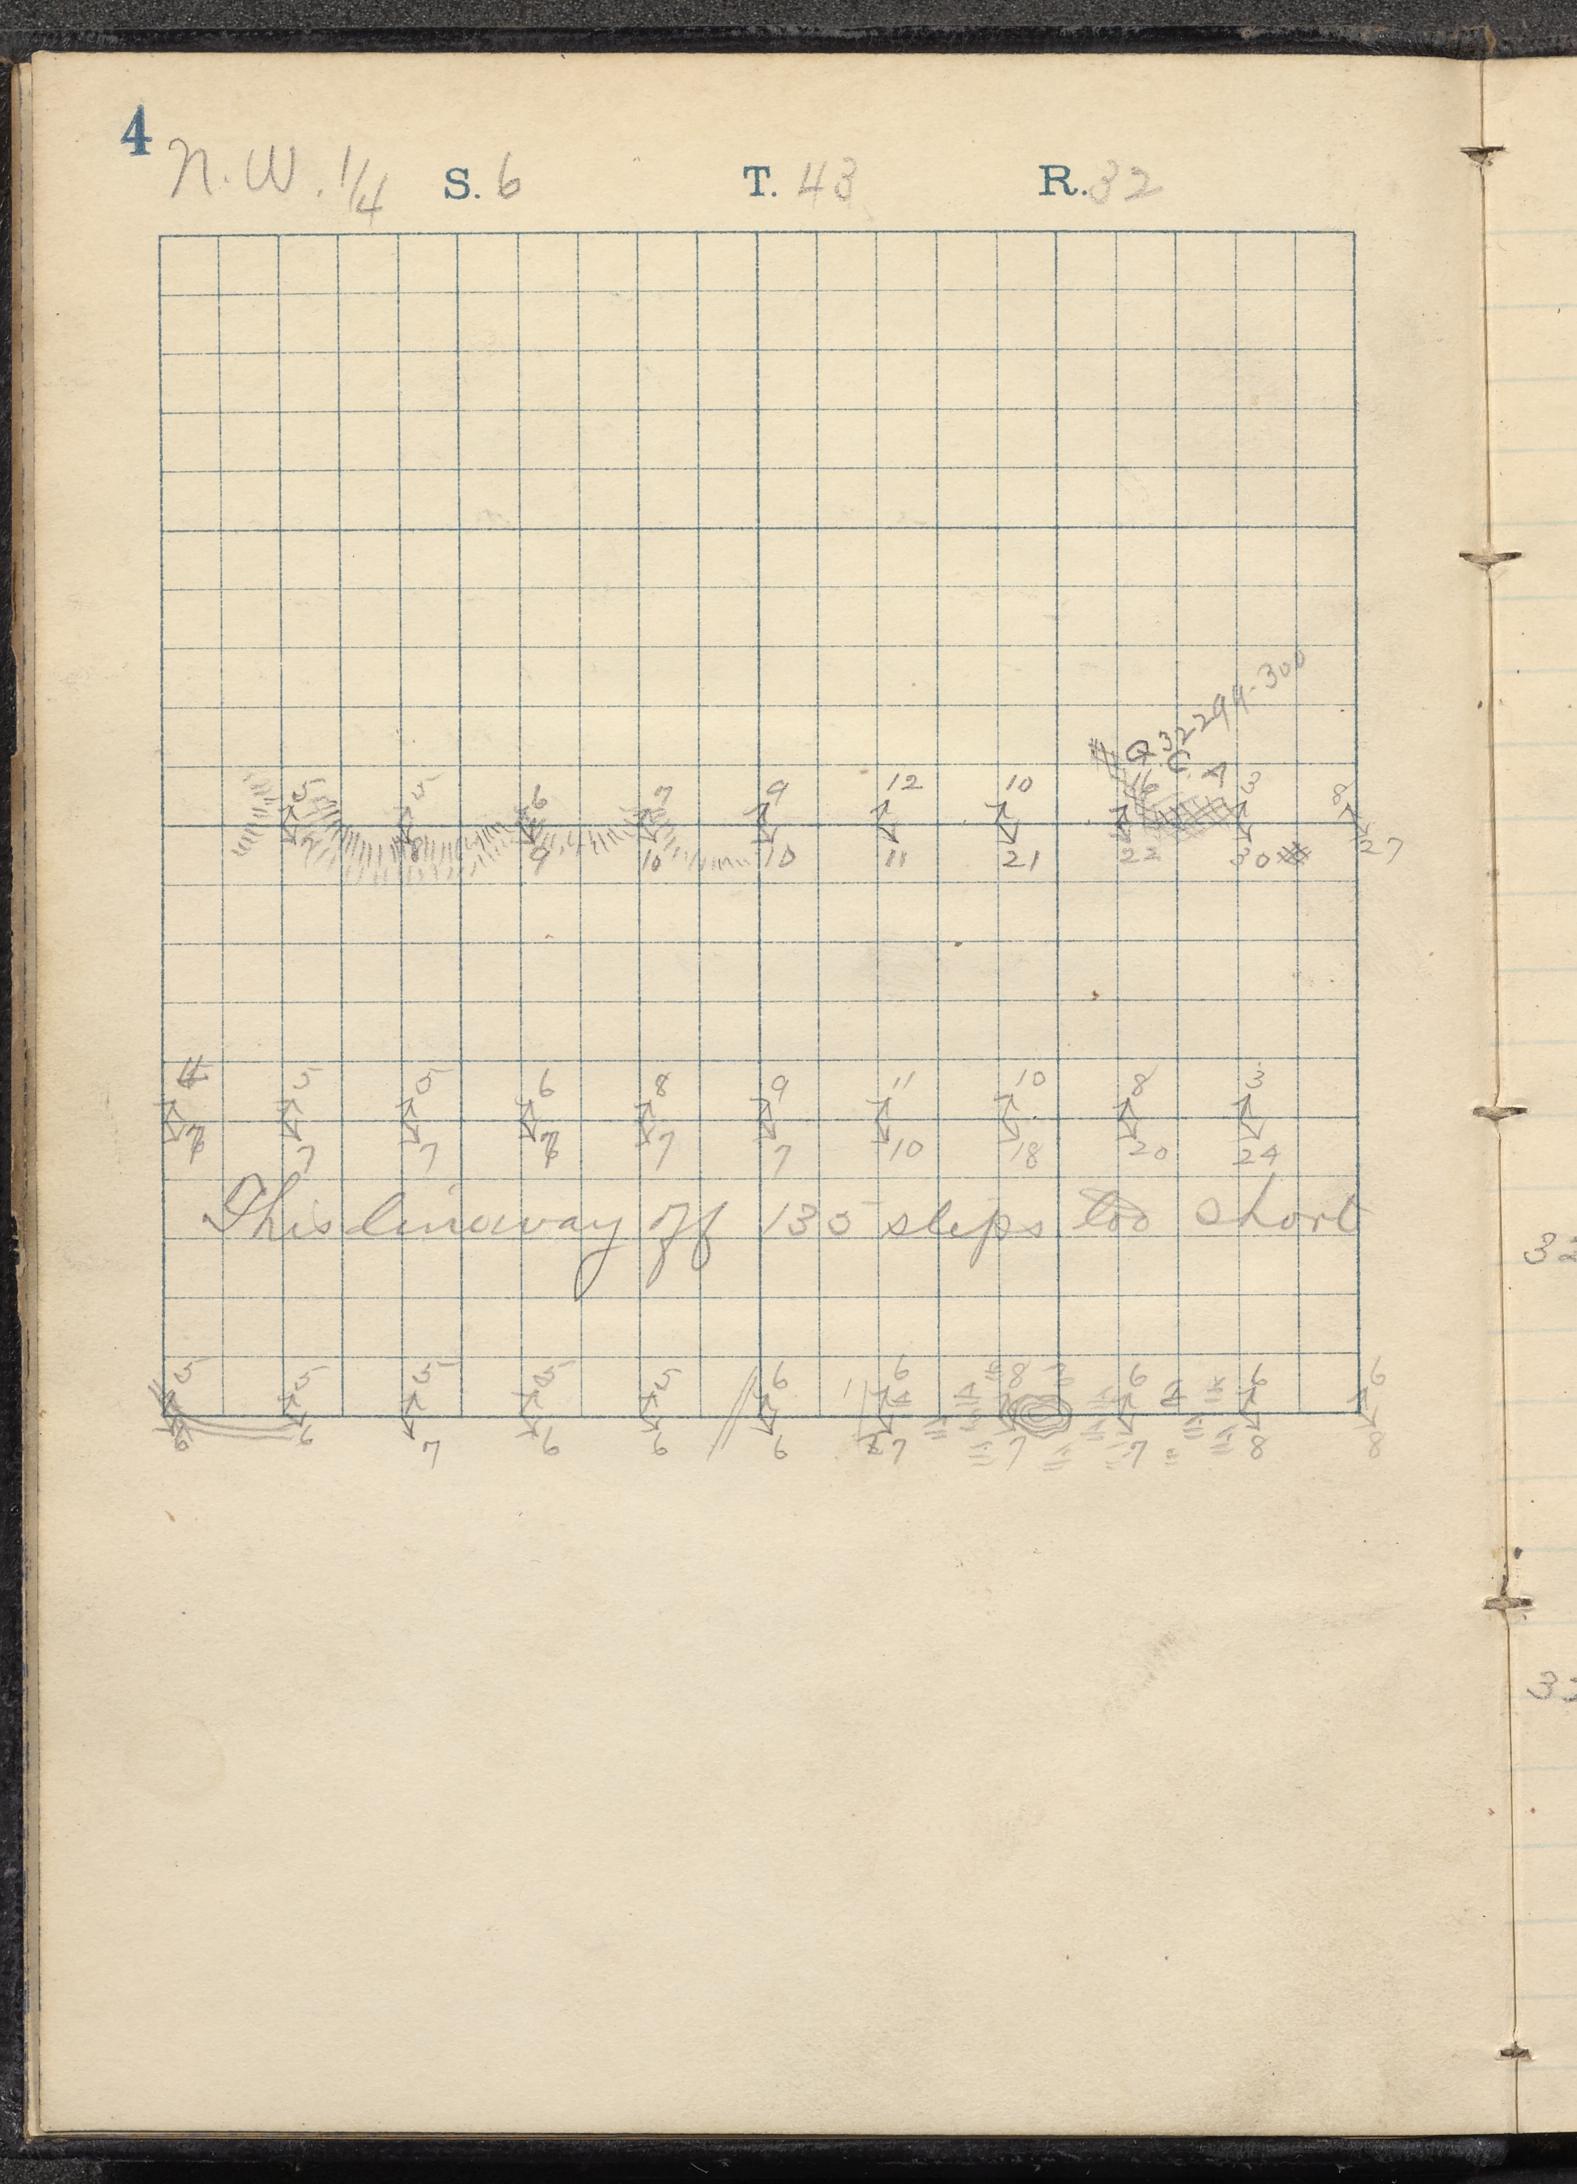 4
N.W. 1/4 S. 6 T. 43 R. 32
Q 32299-300
C. A
5 5 6 7 9 12 10 16 3 8
7 8 9 10 10 11 21 22 30 27
4 5 5 6 8 9 11 10 8 3
7 7 7 7 7 10 18 20 24
This line way off 135 steps too short
5 5 5 5 5 6 6 8 6 6 6
6 6 7 6 6 6 7 7 7 8 8
32